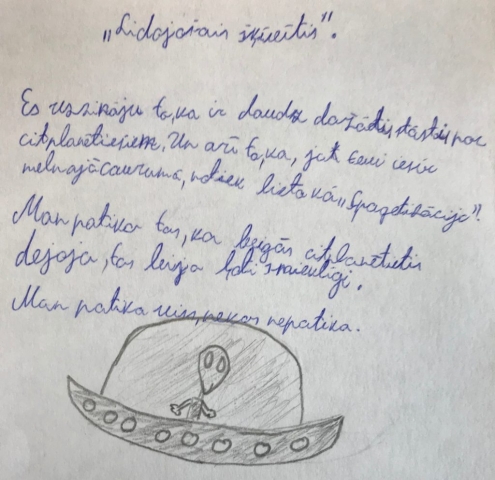 „Lidojošais šķīvītis".
Es uzzināju to, ka ir daudz dažādi stāsti par
citplanētiešiem. Un arī to, ka, ja tevi iesūc
melnajā caurumā, notiek lieta kā „Spagetifikācija".
Man patika tas, ka beigās citplanētietis
dejoja, tas bija ļoti smieklīgi.
Man patika viss, nekas nepatika.